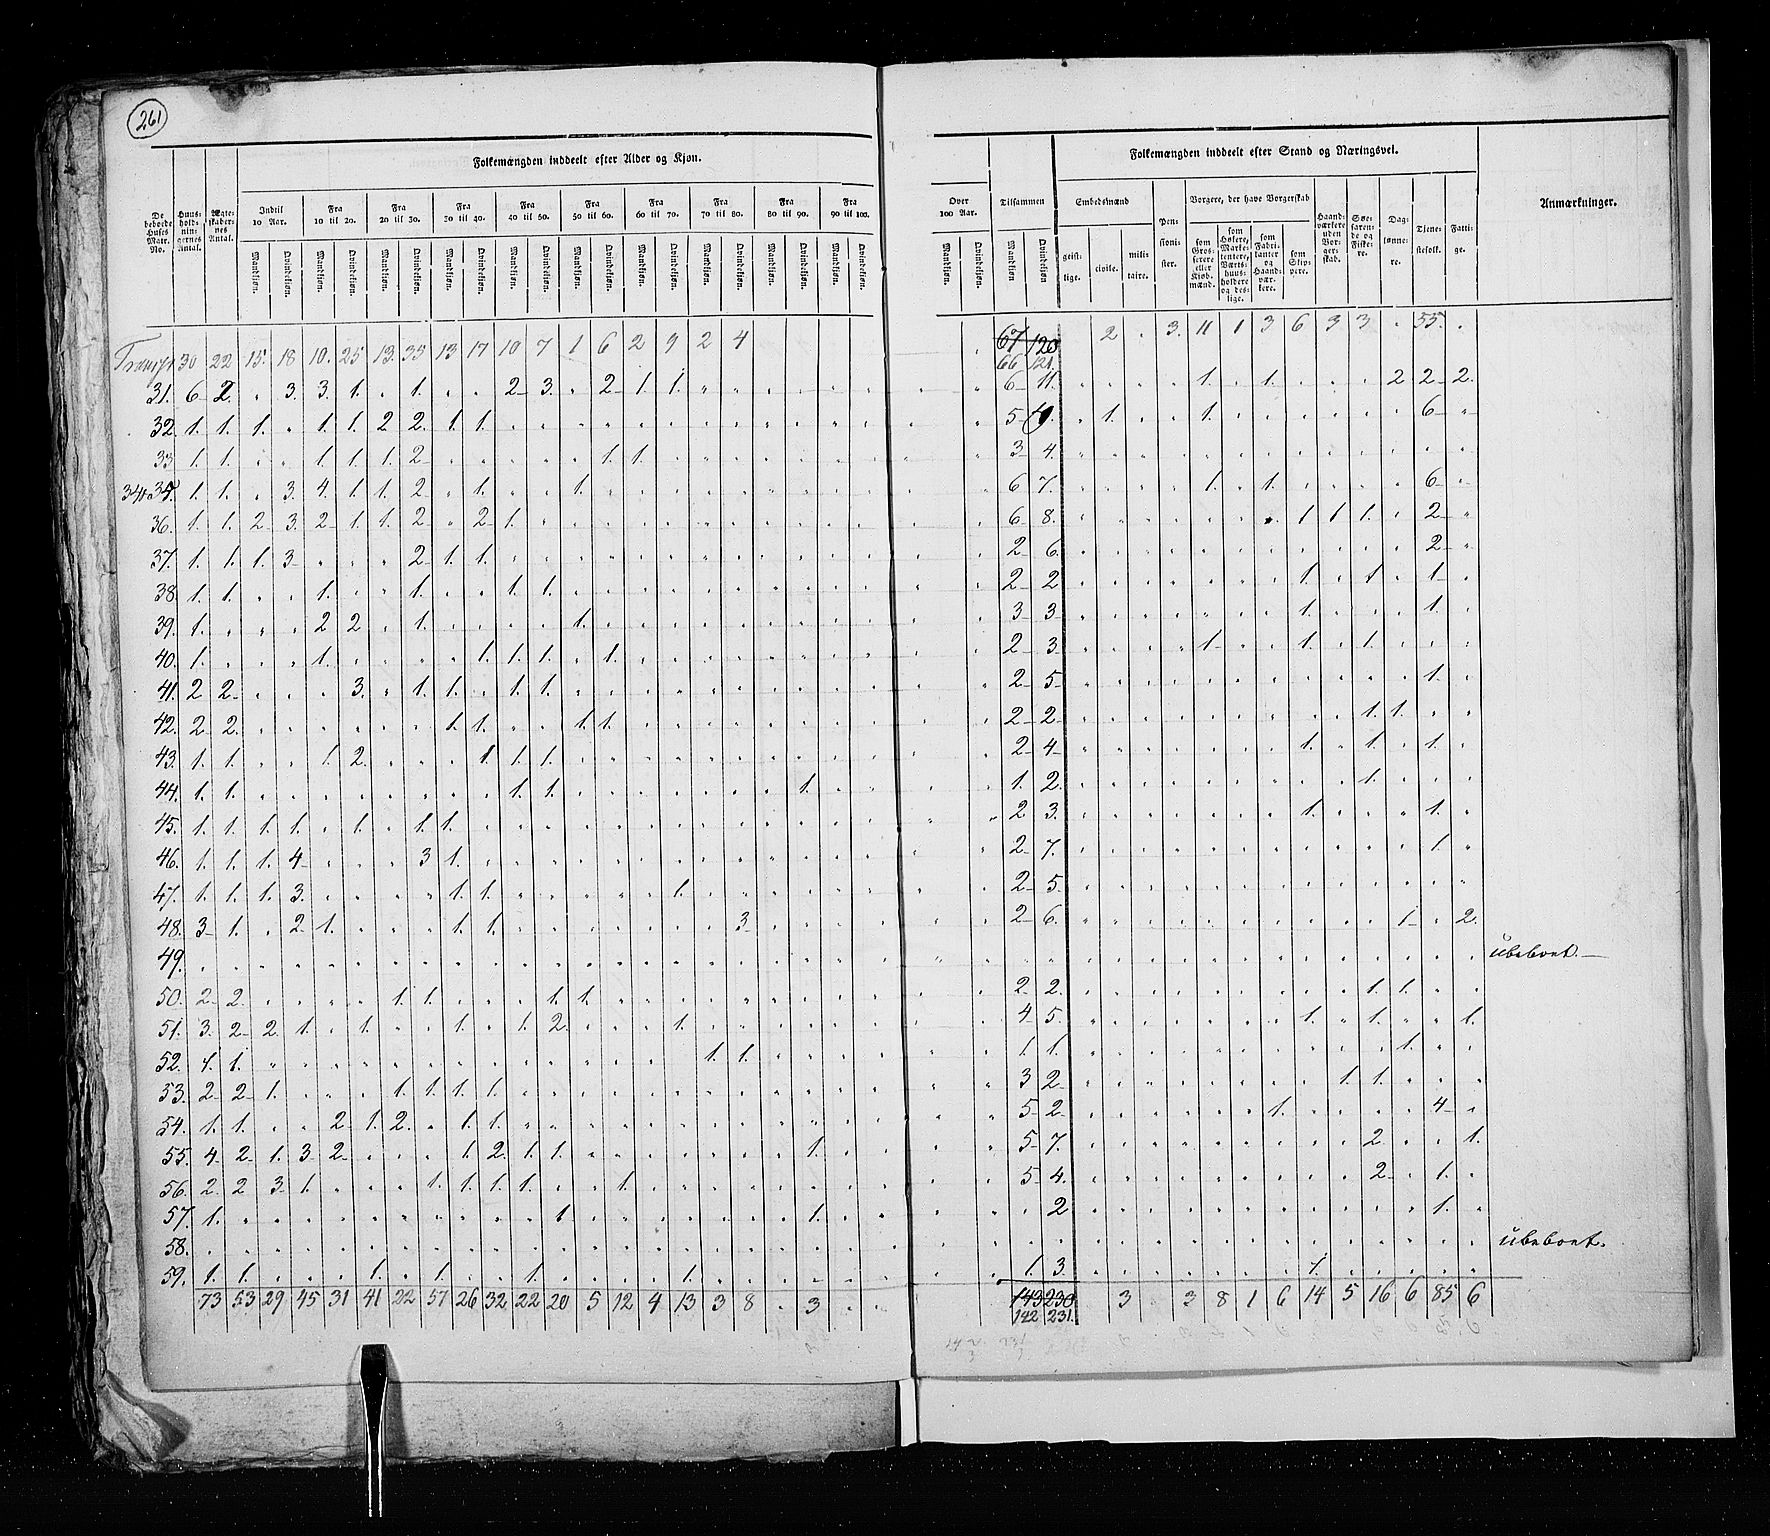 261
Folkemængden inddeelt efter Alder og Kjøn.
Folkemængden inddeelt efter Stand og Næringsvei.
De beboede Huses Matr. No.
Huus-holdnin-gernes Antal.
Ægte-skaber-nes Antal.
Indtil 10 Aar.
Fra 10 til 20.
Fra 20 til 30.
Fra 30 til 40.
Fra 40 til 50.
Fra 50 til 60.
Fra 60 til 70.
Fra 70 til 80.
Fra 80 til 90.
Fra 90 til 100.
Over 100 Aar.
Tilsammen
Embedsmænd
Pen-sioni-ster.
Borgere, der have Borgerskab
Haand-værkere uden Bor-ger-skab.
Søe-farende og Fiske-re.
Dag-lønne-re.
Tjene-stefolk.
Fatti-ge.
Anmærkninger.
Mandkjøn. Qvindekjøn.
geist-lige. civile. mili-taire.
som Gros-serere eller Kjøb-mænd.
som Høkere, Marke-tentere, Værts-huus-holdere og des-lige.
som Fabri-kanter og Haand-vær-kere.
som Skip-pere.
Transpt 30 22 15. 18 10. 25 13. 33 13 17 10 7 1 6 2 9 2 4 67 120 2 3. 11 1 3 6 3 3 55.
66 121.
31. 6 2. 3. 3. 1. 1. 2 3. 2 1. 1. 6 11. 1. 1. 2 2 2.
32. 1. 1. 1. 1. 1. 2 2. 1. 1. 5 1. 1. 6
33 1. 1. 1. 1. 1. 2 1. 1. 3 4.
34 & 35. 1. 1. 3. 4. 1. 1. 2 1. 1. 6 7. 1. 1. 6
36. 1. 1. 2 3. 2 1. 1. 2 2 1. 6 8. 1 1 1. 2
37. 1. 1. 1. 3 2 1. 1. 2 6. 2
38. 1. 1. 1. 1. 1. 1. 2 2 1. 1 1
39. 1. 2 2 1. 1. 3 3 1. 1.
40. 1. 1. 1. 1. 1. 1. 2 3. 1 1. 1.
41. 2 2 3. 1. 1. 1. 1. 2 5. 1.
42. 2 2. 1. 1. 1. 1. 2 2. 1. 1.
43. 1. 1. 1. 2. 1. 1. 1. 2 4 1. 1. 1.
44. 1. 1. 1. 1. 1. 1. 2. 1.
45. 1. 1. 1. 1. 1. 1. 1. 2 3. 1. 1.
46. 1. 1. 1. 4 3 1. 2 7. 1.
47. 1. 1. 1. 3. 1. 1. 1. 2 5.
48. 3 1. 2 1. 1. 1. 3 2 6. 1 2.
49. ubeboet.
50. 2 2. 1. 1. 1. 1. 2 2. 1. 1.
51. 3. 2 2. 1. 1. 1. 1. 2. 1. 4 5. 1. 1. 1.
52. 1. 1. 1. 1. 1. 1. 1.
53. 2 2 1. 1. 1. 1. 1. 3 2 1. 1.
54. 1. 1. 2 1. 2. 1. 1. 5 2. 1. 4
55. 4 2 1. 3 2 1. 2. 1. 1. 1. 5 7. 2 1.
56. 2 2 3 1. 1. 1. 1. 1. 1. 5 4. 2 1.
57. 1. 1 1. 2 1.
58. ubeboet.
59. 1. 1. 1. 1. 1. 1. 1. 3. 1.
73 53 29 45 31 41 22 57 26 32 22 20 5 12 4 13 3 8 3 143 230 3 3 8 1 6 14 5 16 6 85 6
142 231.